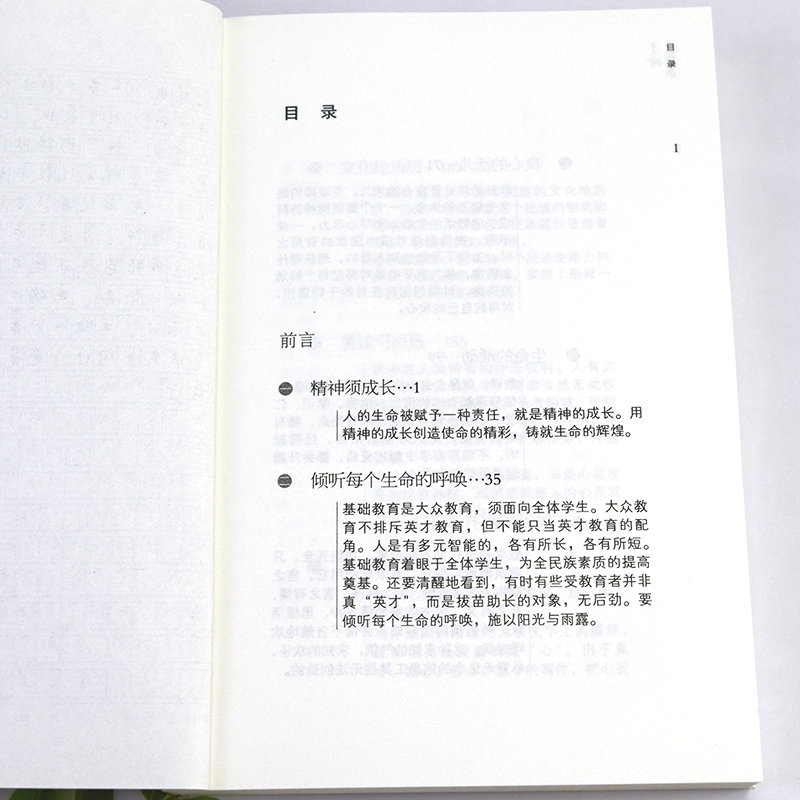 目录
1
目 录
前言
一 精神须成长…1
人的生命被赋予一种责任，就是精神的成长。用
精神的成长创造使命的精彩，铸就生命的辉煌。
二 倾听每个生命的呼唤…35
基础教育是大众教育，须面向全体学生。大众教
育不排斥英才教育，但不能只当英才教育的配
角。人是有多元智能的，各有所长，各有所短。
基础教育着眼于全体学生，为全民族素质的提高
奠基。还要清醒地看到，有时有些受教育者并非
真“英才”，而是拔苗助长的对象，无后劲。要
倾听每个生命的呼唤，施以阳光与雨露。